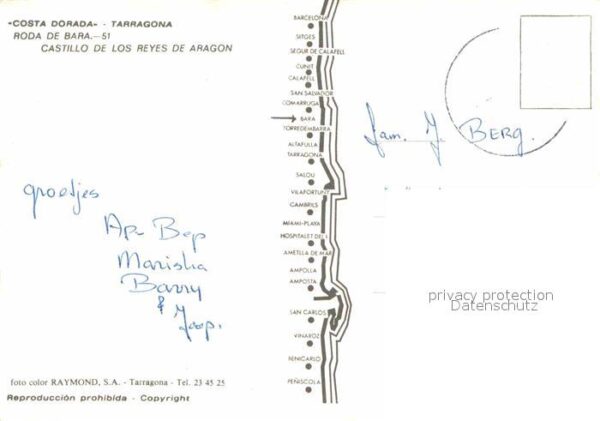 «COSTA DORADA» - TARRAGONA
RODA DE BARA.—51
CASTILLO DE LOS REYES DE ARAGON
groetjes
Ap Bep
Mariska
Barry
& Joop.
foto color RAYMOND, S.A. - Tarragona - Tel. 23 45 25
Reproducción prohibida - Copyright
BARCELONA
SITGES
SEGUR DE CALAFELL
CUNIT
CALAFELL
SAN SALVADOR
COMARRUGA
BARA
TORREDEMBARRA
ALTAFULLA
TARRAGONA
SALOU
VILAFORTUNY
CAMBRILS
MIAMI-PLAYA
HOSPITALET DEL I.
AMETLLA DE MAR
AMPOLLA
AMPOSTA
SAN CARLOS
VINAROZ
BENICARLO
PEÑISCOLA
fam. J. BERG.
privacy protection
Datenschutz